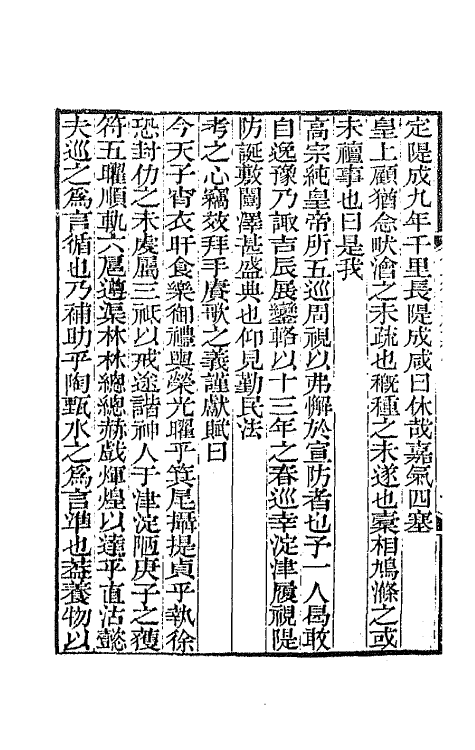 定隄成九年千里長隄成咸曰休哉嘉氣四塞
皇上顧猶念畎澮之未疏也穊種之未遂也稾相鳩滌之或
未禮事也曰是我
高宗純皇帝所五巡周視以弗懈於宣防者也予一人曷敢
自逸豫乃諏吉辰展鑾輅以十三年之春巡幸淀津履視隄
防誕敷闓澤甚盛典也仰見勤民法
考之心竊效拜手賡歌之義謹獻賦曰
今天子宵衣旰食樂御禮輿榮光曜乎箕尾攝提貞乎執徐
恐封仂之未虔屬三祇以戒途諧神人于津淀陋庚子之獲
符五曜順軌六扈遵渠林林總總赫戲煇煌以達乎直沽懿
夫巡之爲言循也乃補助乎陶甄水之爲言準也葢養物以